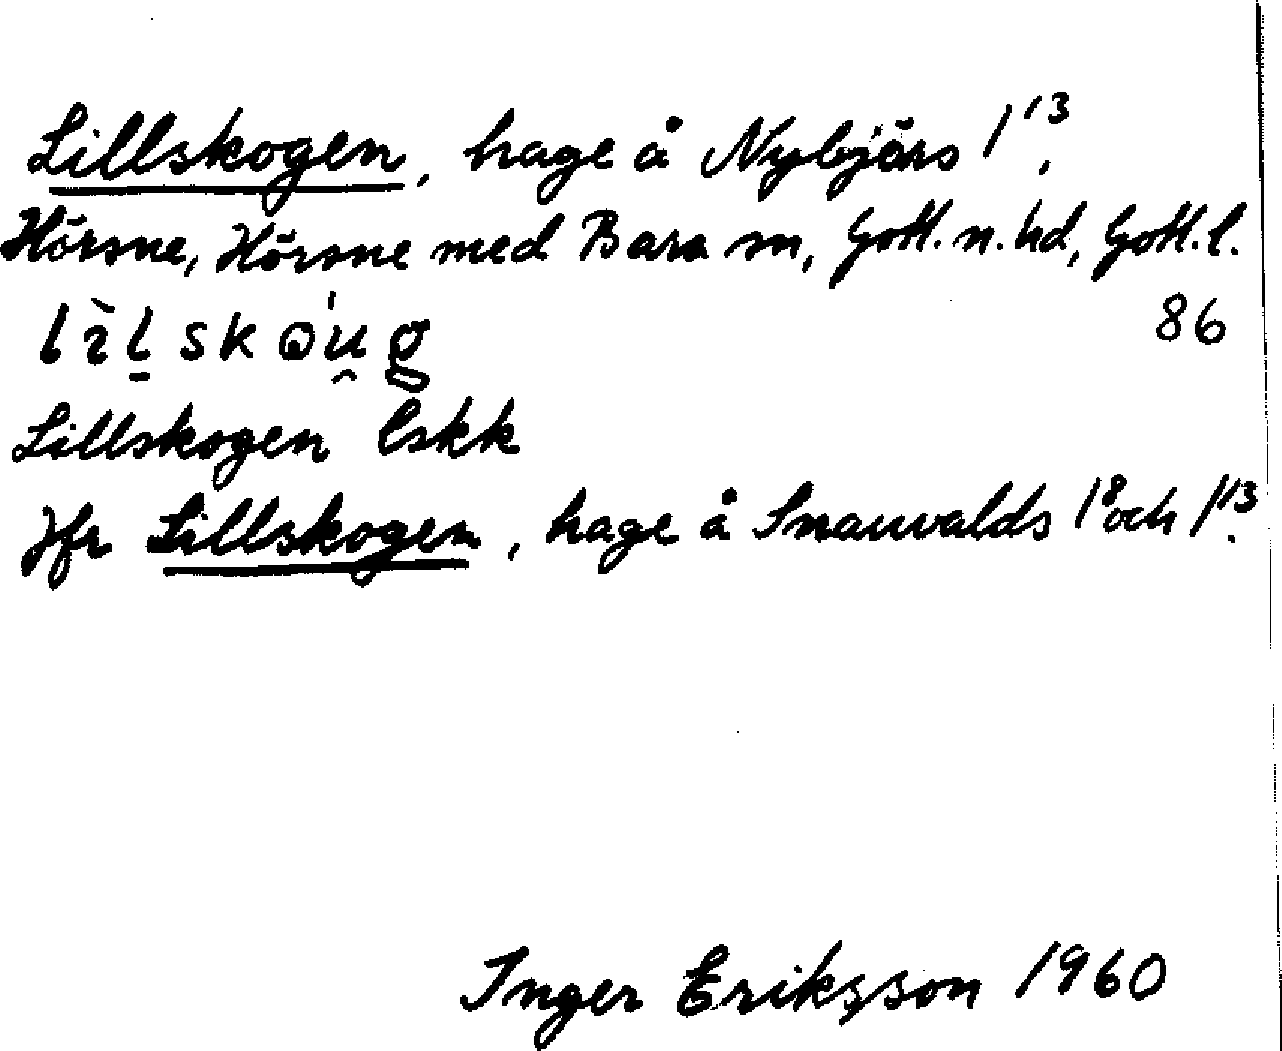 Lillskogen, hage å Nybjärs 1¹³,
Hörsne, Hörsne med Bara sn, Gotl. n. hd, Gotl. l.
86
Lillskogen Eskk
Jfr Lillskogen, hage å Snauvalds 1⁸ och 1¹³.
Inger Eriksson 1960